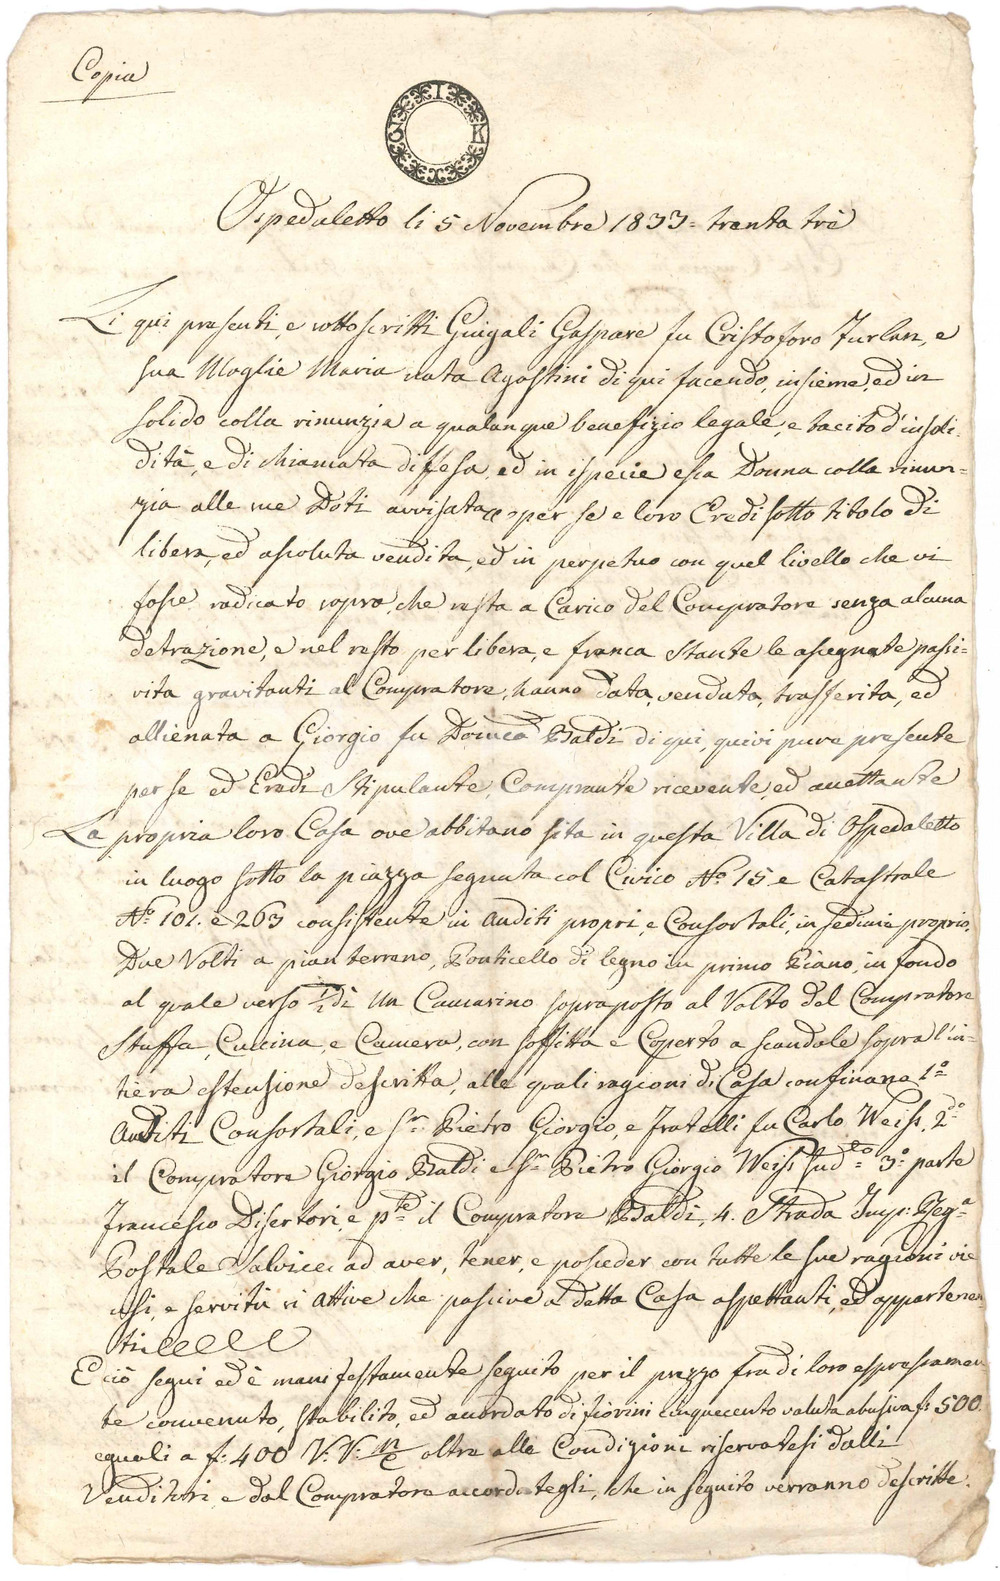 Copia
Ospedaletto li 5 Novembre 1833 = trenta trè
Li qui presenti, e sottoscritti Guigali Gaspare fu Cristoforo Furlan, e
sua Moglie Maria nata Agostini di qui facendo, insieme, ed in
solido colla rinunzia a qualunque benefizio legale, e tacito d'insoli-
dità, e di chiamata difesa, ed in ispecie essa Donna colla rinun=
zia alle sue Doti avvisata per se e loro Eredi sotto titolo di
libera, ed assoluta vendita, ed in perpetuo con quel livello che vi
fosse radicato sopra, che resta a Carico del Compratore senza alcuna
detrazione, e nel resto per libera, e franca stante le assegnate passi=
vità gravitanti al Compratore, hanno data, venduta, trasferita, ed
allienata a Giorgio fu Domco Baldi di qui, quivi pure presente
per se ed Eredi Stipulante, Comprante ricevente, ed accettante
La propria loro Casa ove abbitano sita in questa Villa di Ospedaletto
in luogo sotto la piazza segnata col Civico No 15 e Catastrale
No 101. e 263 consistente in Anditi propri, e Consortali, in sedime proprio,
Due Volti a pian terreno, Ponticello di legno in primo Piano, in fondo
al quale verso ½ dì Un Camarino sopraposto al Volto del Compratore
Stuffa, Cucina, e Camera, con soffitta e Coperto a scandole sopra l'in-
tiera estensione descritta, alle quali ragioni di Casa confinano 1o
Anditi Consortali, e Sr Pietro Giorgio, e fratelli fu Carlo Weiss, 2o
il Compratore Giorgio Baldi e Sr Pietro Giorgio Weiss sudto 3o parte
Francesco Disertori, e pte il Compratore Baldi, 4. Strada Imp: Rega
Postale Salvice: ad aver, tener, e posseder con tutte le sue ragioni vie
usi, e servitù sì attive che passive a detta Casa aspettanti, ed apparten
ti
E ciò seguì ed è manifestamente seguito per il prezzo fra di loro espressamen
te convenuto, stabilito, ed accordato di fiorini cinquecento valuta abusiva f: 500
eguali a f: 400 V: V: oltre alle Condizioni riservatesi dalli
Venditori, e dal Compratore accordategli, che in seguito verranno descritte.